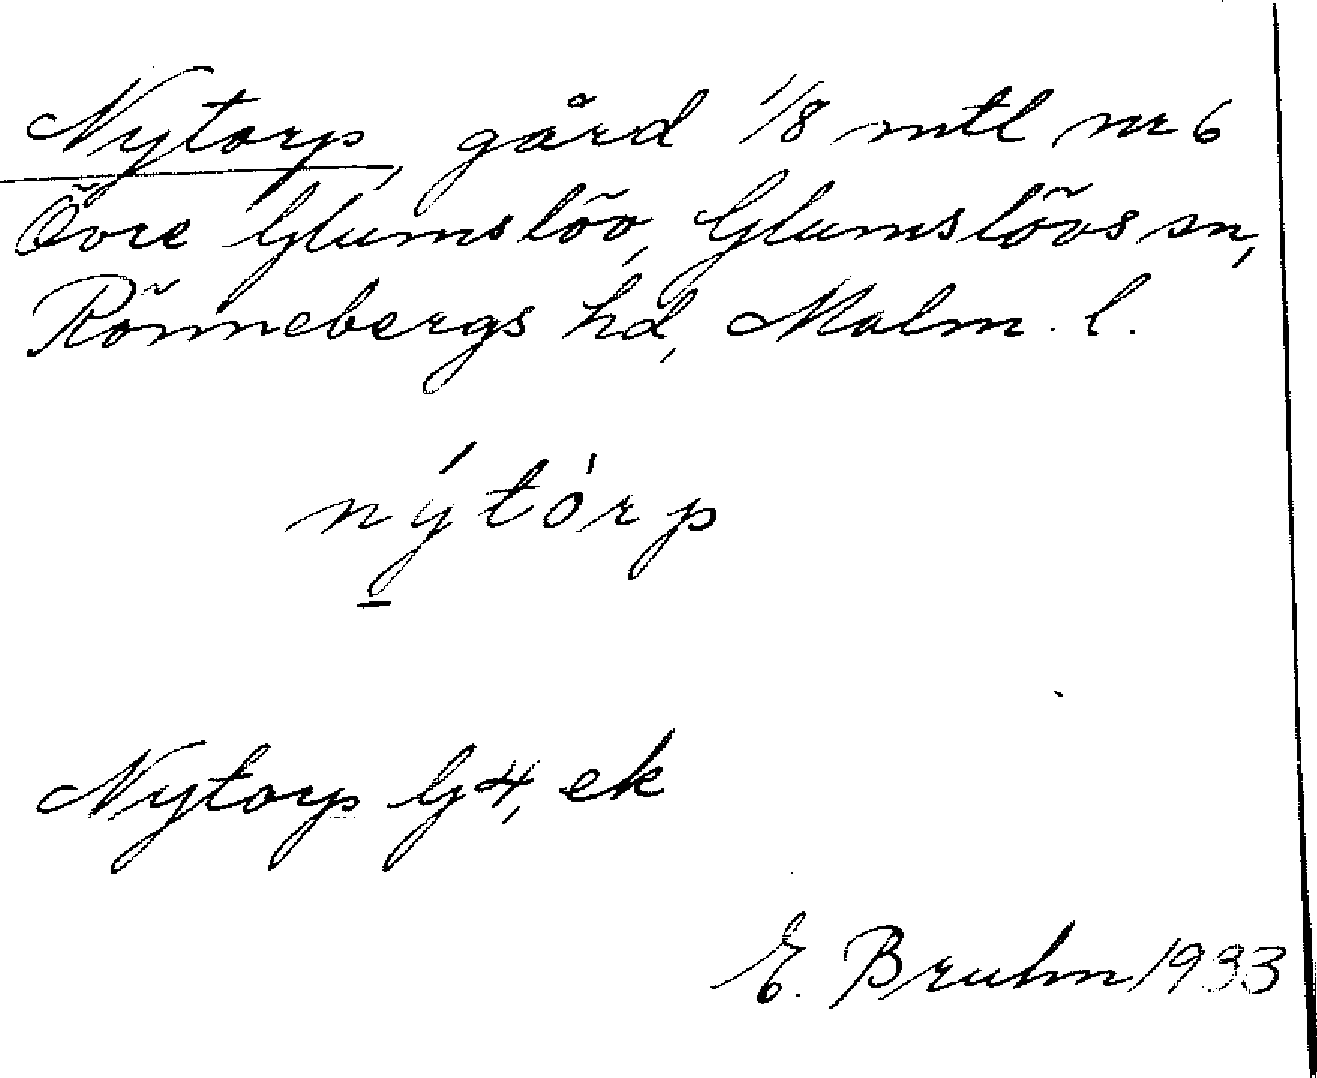 Nytorp, gård 1/8 mtl nr 6
Övre Glumslöv, Glumslövs sn,
Rönnebergs hd, Malm. l.
nýtórp
Nytorp G4, ek
E. Bruhn 1933